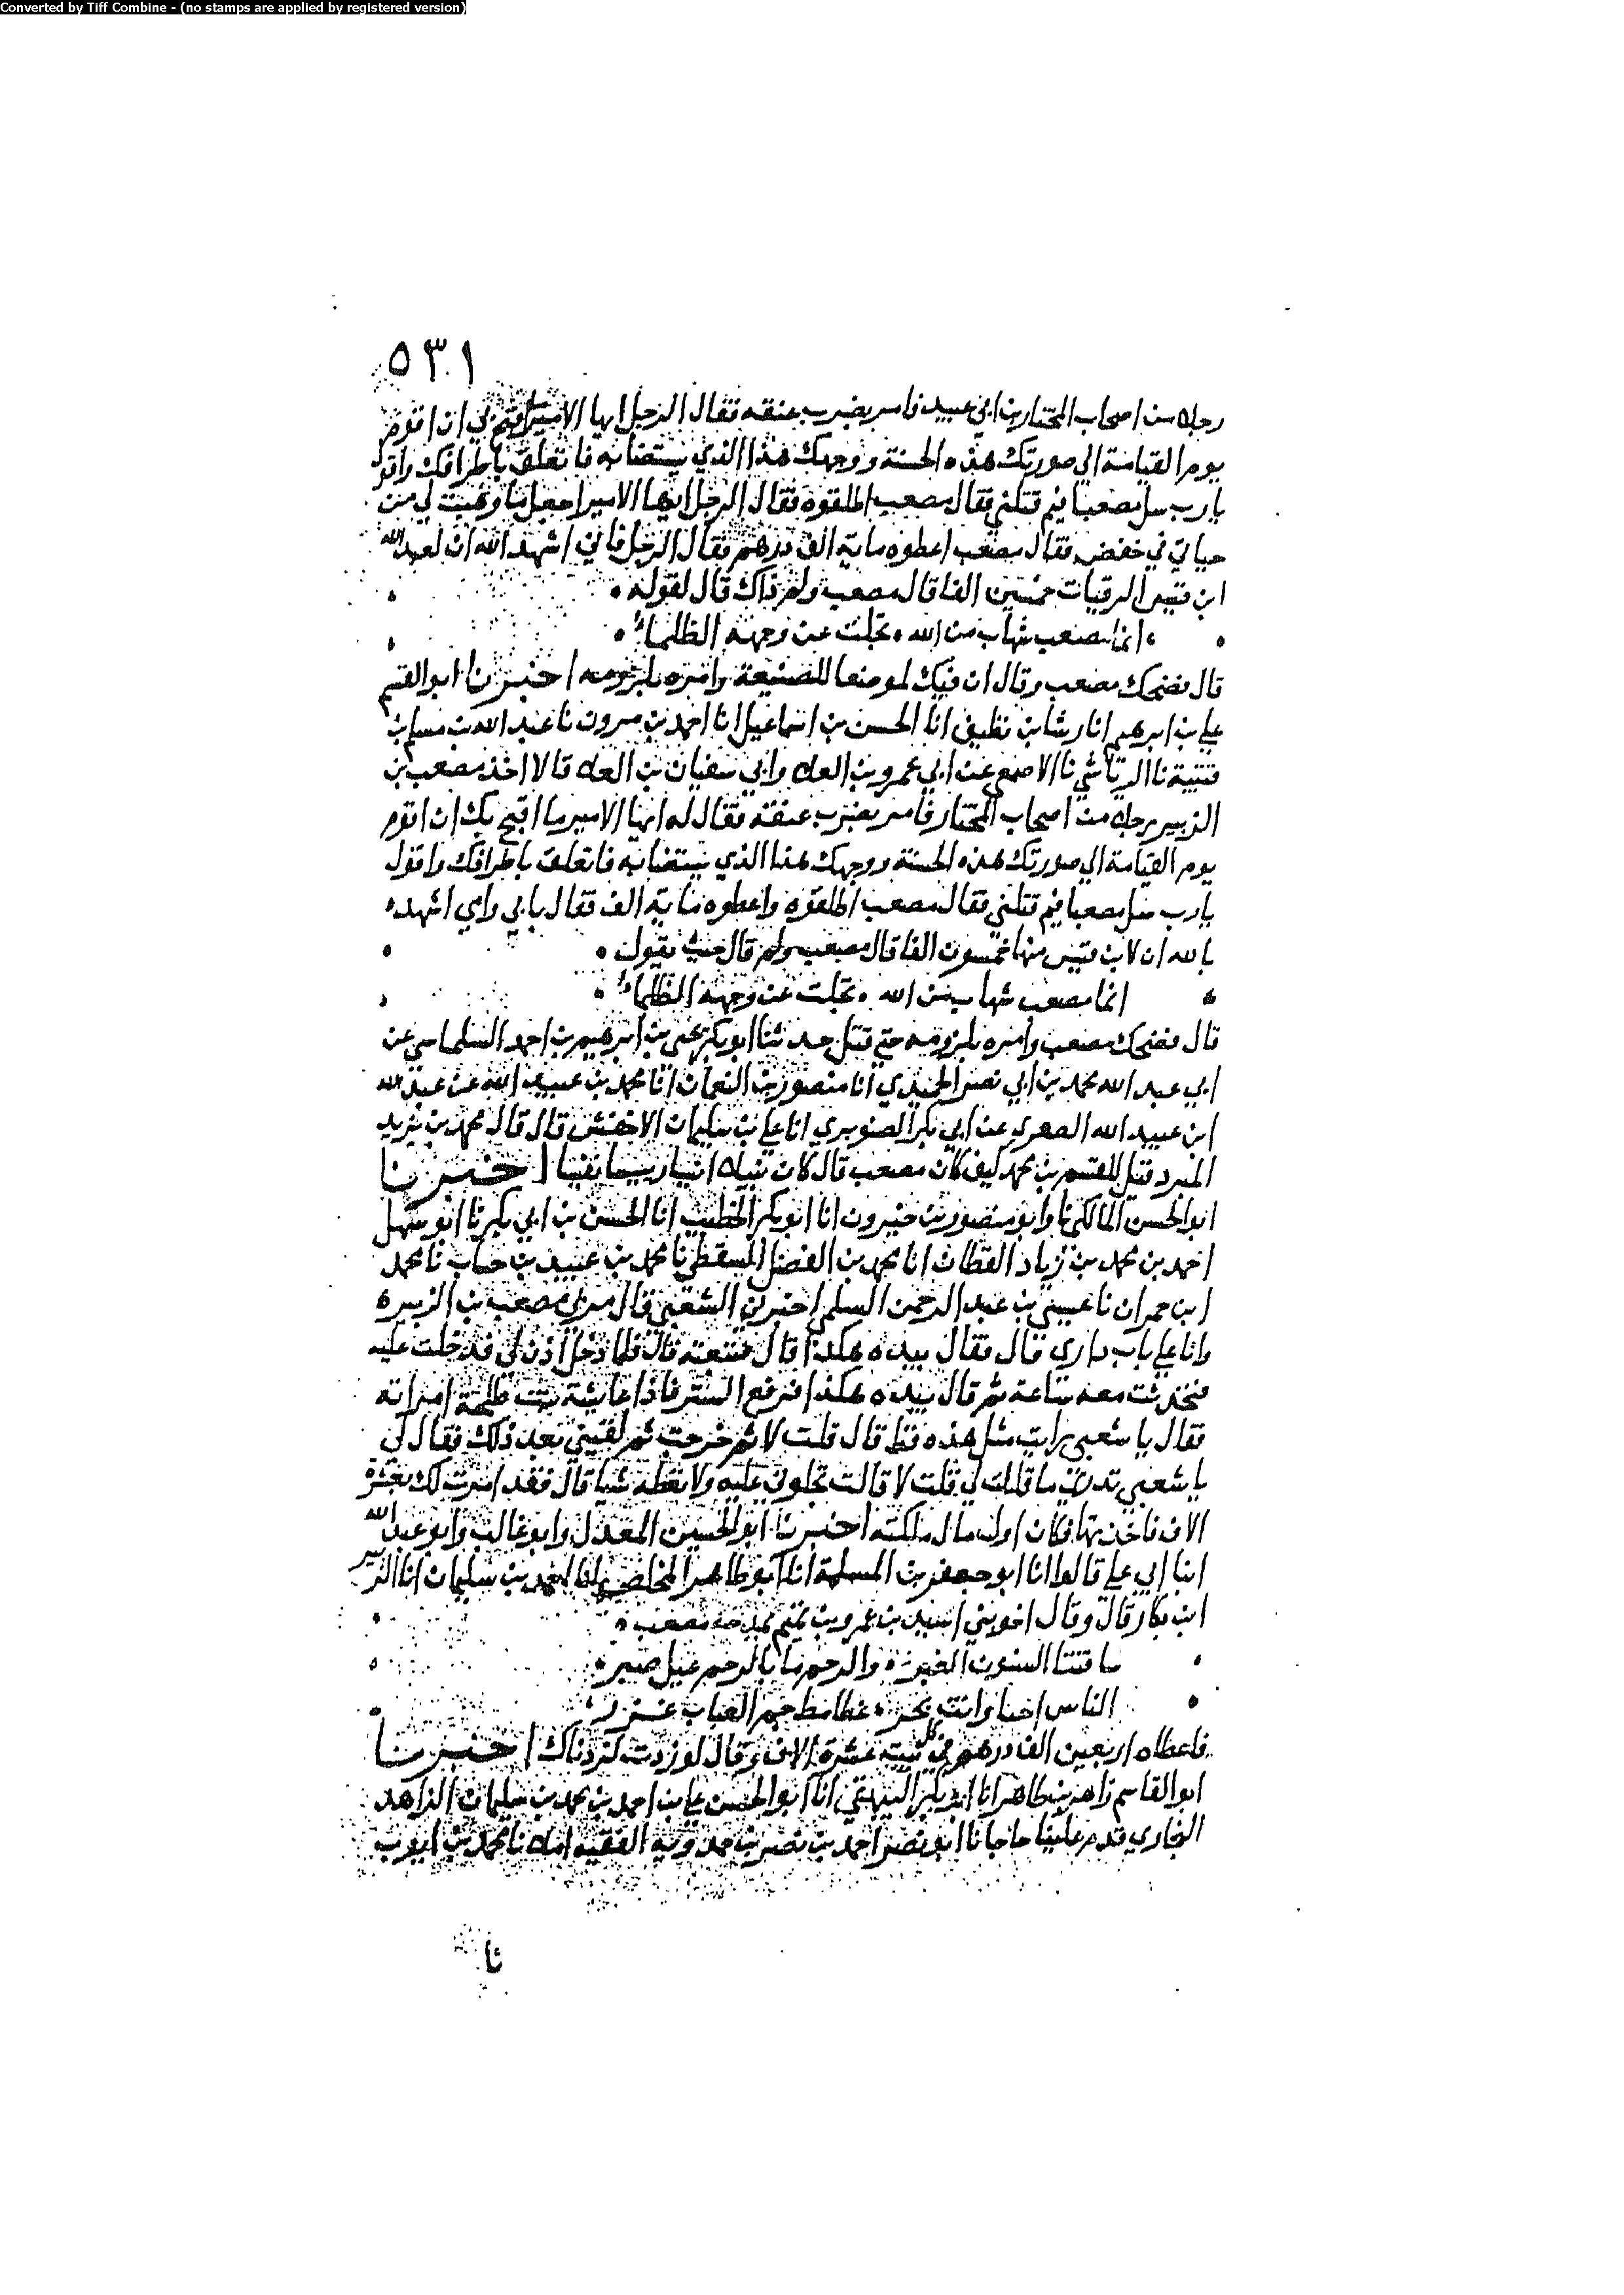 Converted by Tiff Combine - (no stamps are applied by registered version)
٥٣١
رجلا من اصحاب المختار بن ابي عبيد فامر بضرب عنقه فقال الرجل ايها الامير ما اقبح بي ان اقوم
يوم القيامة الي صورتك هذه الحسنة ووجهك هذا الذي يستضا به فاتعلق باطرافك واقول
يارب سل مصعبا فيم قتلني فقال مصعب اطلقوه فقال الرجل ايها الامير اجعل ما وهبت لي من
حياتي في خفض فقال مصعب اعطوه ماية الف درهم فقال الرجل فاني اشهد الله ان لعبد الله
ابن قيس الرقيات خمسين الفا قال مصعب ولم ذاك قال لقوله
انما مصعب شهاب من الله تجلت عن وجهه الظلماء
قال فضحك مصعب وقال ان فيك لموضعا للصنيعة وامره بلزومه اخبرنا ابو القسم
علي بن ابرهيم انا رشا بن نظيف انا الحسن بن اسماعيل انا احمد بن مروان نا عبد الله بن مسلم بن
قتيبة نا الرياشي نا الاصمعي عن ابي عمرو بن العلا وابي سفيان بن العلا قالا اخذ مصعب بن
الزبير رجلا من اصحاب المختار فامر بضرب عنقه فقال له ايها الامير ما اقبح بك ان اقوم
يوم القيامة الي صورتك هذه الحسنة ووجهك هذا الذي يستضا به فاتعلق باطرافك واقول
يارب سل مصعبا فيم قتلني فقال مصعب اطلقوه واعطوه ماية الف فقال بابي وامي اشهد
بالله ان لابن قيس منها خمسون الفا قال مصعب ولم قال حيث يقول
انما مصعب شهاب من الله تجلت عن وجهه الظلماء
قال فضحك مصعب وامره بلزومه حتي قتل حدثنا ابو بكر يحيي بن ابرهيم بن احمد السلماسي عن
ابي عبد الله محمد بن ابي نصر الحميدي انا منصور بن النعمان انا محمد بن عبيد الله عن عبد الله
ابن عبيد الله الصفري عن ابي بكر الصنوبري انا علي بن سليمان الاخفش قال قال محمد بن يزيد
المبرد قيل للقسم بن محمد كيف كان مصعب قال كان نبيلا رييسا نفيسا اخبرنا
ابو الحسن المالكي نا وابو منصور بن خيرون انا ابو بكر الخطيب انا الحسن بن ابي بكر نا ابو سهل
احمد بن محمد بن زياد القطان انا محمد بن الفضل السقطي نا محمد بن عبيد بن حساب نا محمد
ابن حمران نا عيسي بن عبد الرحمن السلمي اخبرني الشعبي قال مر بي مصعب بن الزبير
وانا علي باب داري قال فقال بيده هكذا قال فتبعته قال فلما دخل اذن لي فدخلت عليه
فتحدثت معه ساعة ثم قال بيده هكذا فرفع الستر فاذا عايشة بنت طلحة امراته
فقال يا شعبي رايت مثل هذه قط قال قلت لا ثم خرجت ثم لقيني بعد ذلك فقال لي
يا شعبي تدري ما قالت لي قلت لا قالت تجلوني عليه ولا تعطه شيا قال فقد امرت لك بعشرة
الاف فاخذتها فكان اول مال ملكته اخبرنا ابو الحسين المعدل وابو غالب وابو عبد الله
ابنا ابي علي قالوا انا ابو جعفر بن المسلمة انا ابو طاهر المخلص انا احمد بن سليمان انا الزبير
ابن بكار قال وقال اخو بني اسيد بن عمرو بن تميم يمدح مصعب
الناس احسا وانت بحر غطامط جم العباب غزر
فاعطاه اربعين الف درهم في كل بيت عشرة الاف وقال لو زدت لزدناك اخبرنا
ابو القاسم زاهر بن طاهر انا ابو بكر البيهقي انا ابو الحسن علي بن احمد بن محمد بن سليمان الزاهد
البخاري قدم علينا حاجا نا ابو نصر احمد بن نصر بن حمدويه الفقيه املا نا محمد بن ايوب
نا